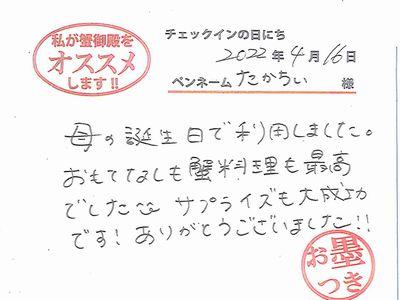 私が蟹御殿を
オススメ
します!!
チェックインの日にち
2022年4月16日
ペンネーム たかちぃ 様
母の誕生日で利用しました。
おもてなしも蟹料理も最高
でした サプライズも大成功
です! ありがとうございました!!
お墨
つき